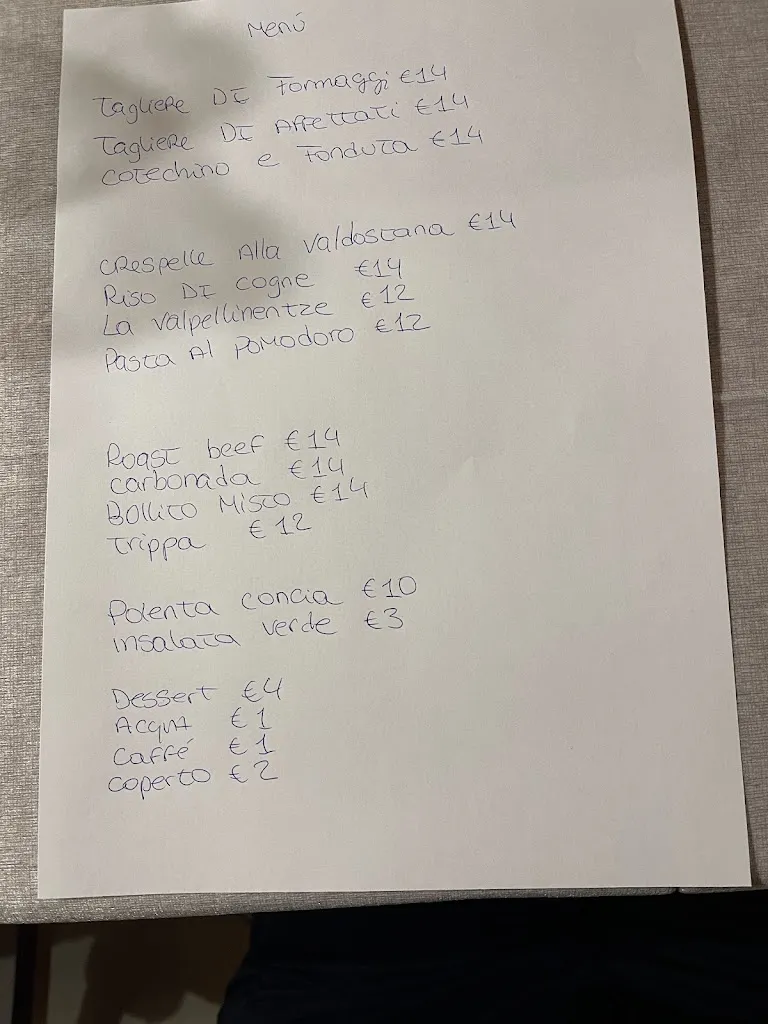 Menú
Tagliere DI Formaggi €14
Tagliere DI Affettati €14
Cotechino e Fonduta €14
Crespelle Alla Valdostana €14
Riso DI Cogne €14
La Valpellinentze €12
Pasta Al Pomodoro €12
Roast beef €14
Carbonada €14
Bollito Misto €14
Trippa €12
Polenta concia €10
insalata verde €3
Dessert €4
Acqua €1
Caffé €1
Coperto €2